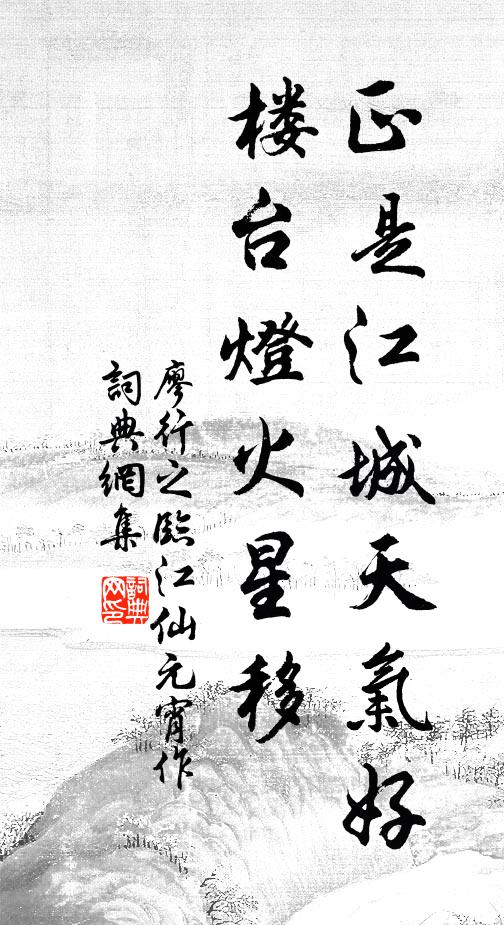 正是江城天氣好
楼台燈火星移
廖行之臨江仙元宵作
詞典網集
詞典
网印